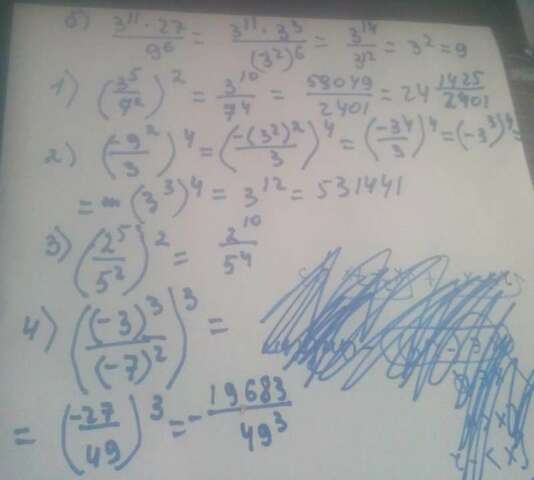 б) (3^11 · 27)/9^6 = (3^11 · 3^3)/(3^2)^6 = 3^14/3^12 = 3^2 = 9
1) (3^5/7^2)^2 = 3^10/7^4 = 59049/2401 = 24 1425/2401
2) (-9^2/3)^4 = (-(3^2)^2/3)^4 = (-3^4/3)^4 = (-3^3)^4 =
= (3^3)^4 = 3^12 = 531441
3) (2^5/5^2)^2 = 2^10/5^4
4) ((-3)^3/(-7)^2)^3 =
= (-27/49)^3 = - 19683/49^3